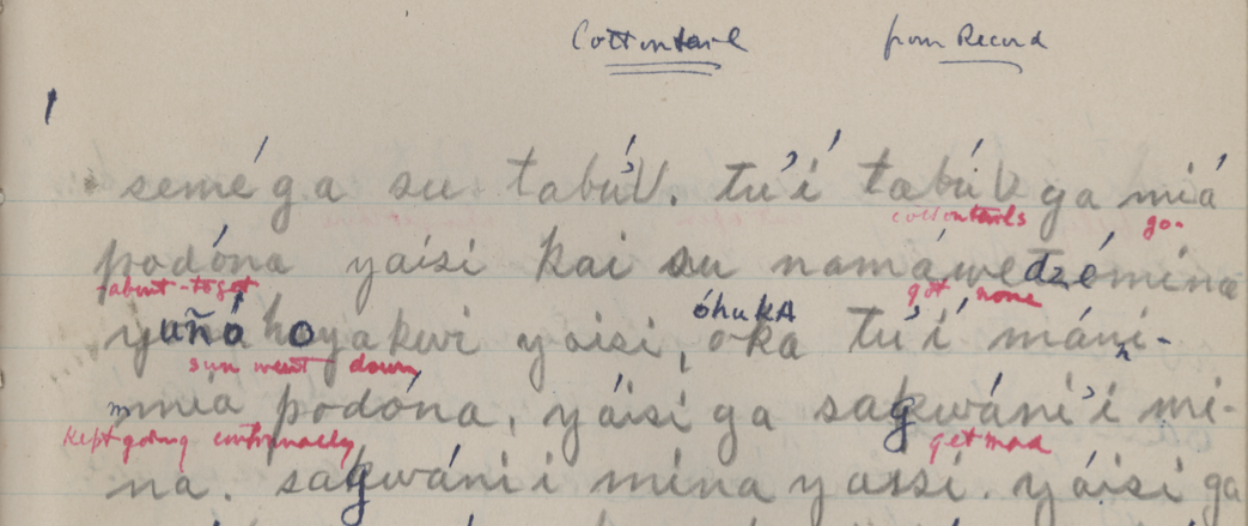 Cottontail from Record
1
semé ga su tabú'V. tu'í tabúV ga miá
cottontails go.
podóna yaísi kai su namáwedzómina
about-to get got none
yuñá hoyakwi yaisi, óka tu'í máni-
óhukA
sun went down
mmia podóna, yáisi ga sagwáni'i mi-
kept going continually get mad
na. sagwáni i mina yaisi. yáisi ga